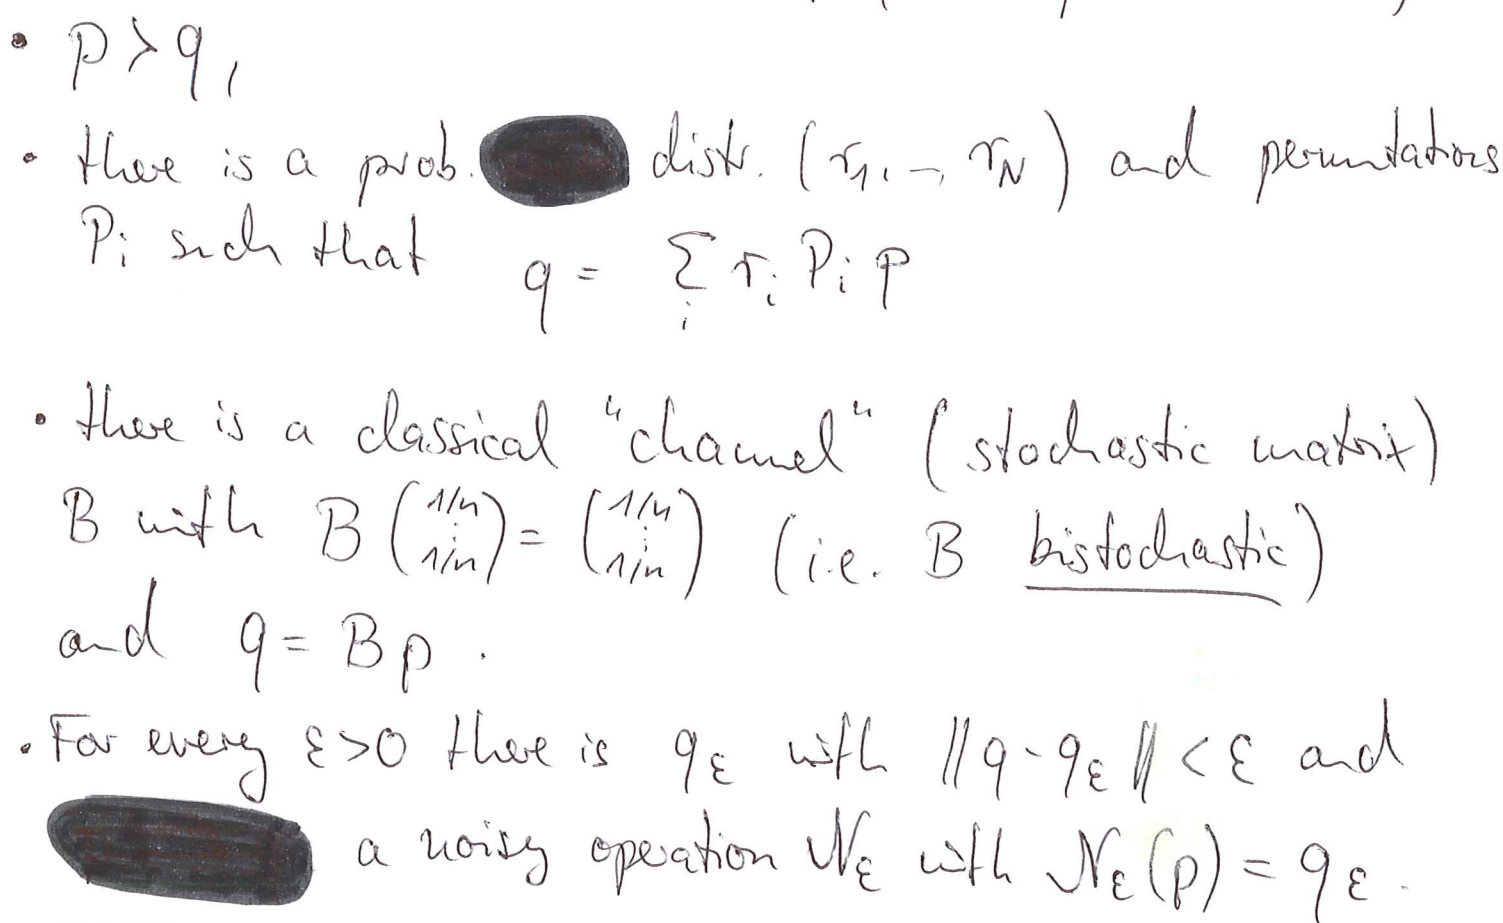 • p ≻ q,
• there is a prob. distr. (r₁, .., r_N) and permutations
P_i such that q = Σ_i r_i P_i p
• there is a classical "channel" (stochastic matrix)
B with B (1/n ⋮ 1/n) = (1/n ⋮ 1/n) (i.e. B bistochastic)
and q = Bp.
• For every ε>0 there is q_ε with ||q - q_ε|| < ε and
a noisy operation N_ε with N_ε(p) = q_ε.